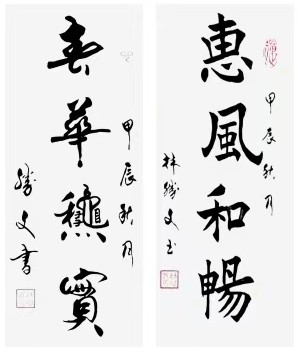 惠風和暢
甲辰秋月
林文书
春華龝實
甲辰秋月
文書